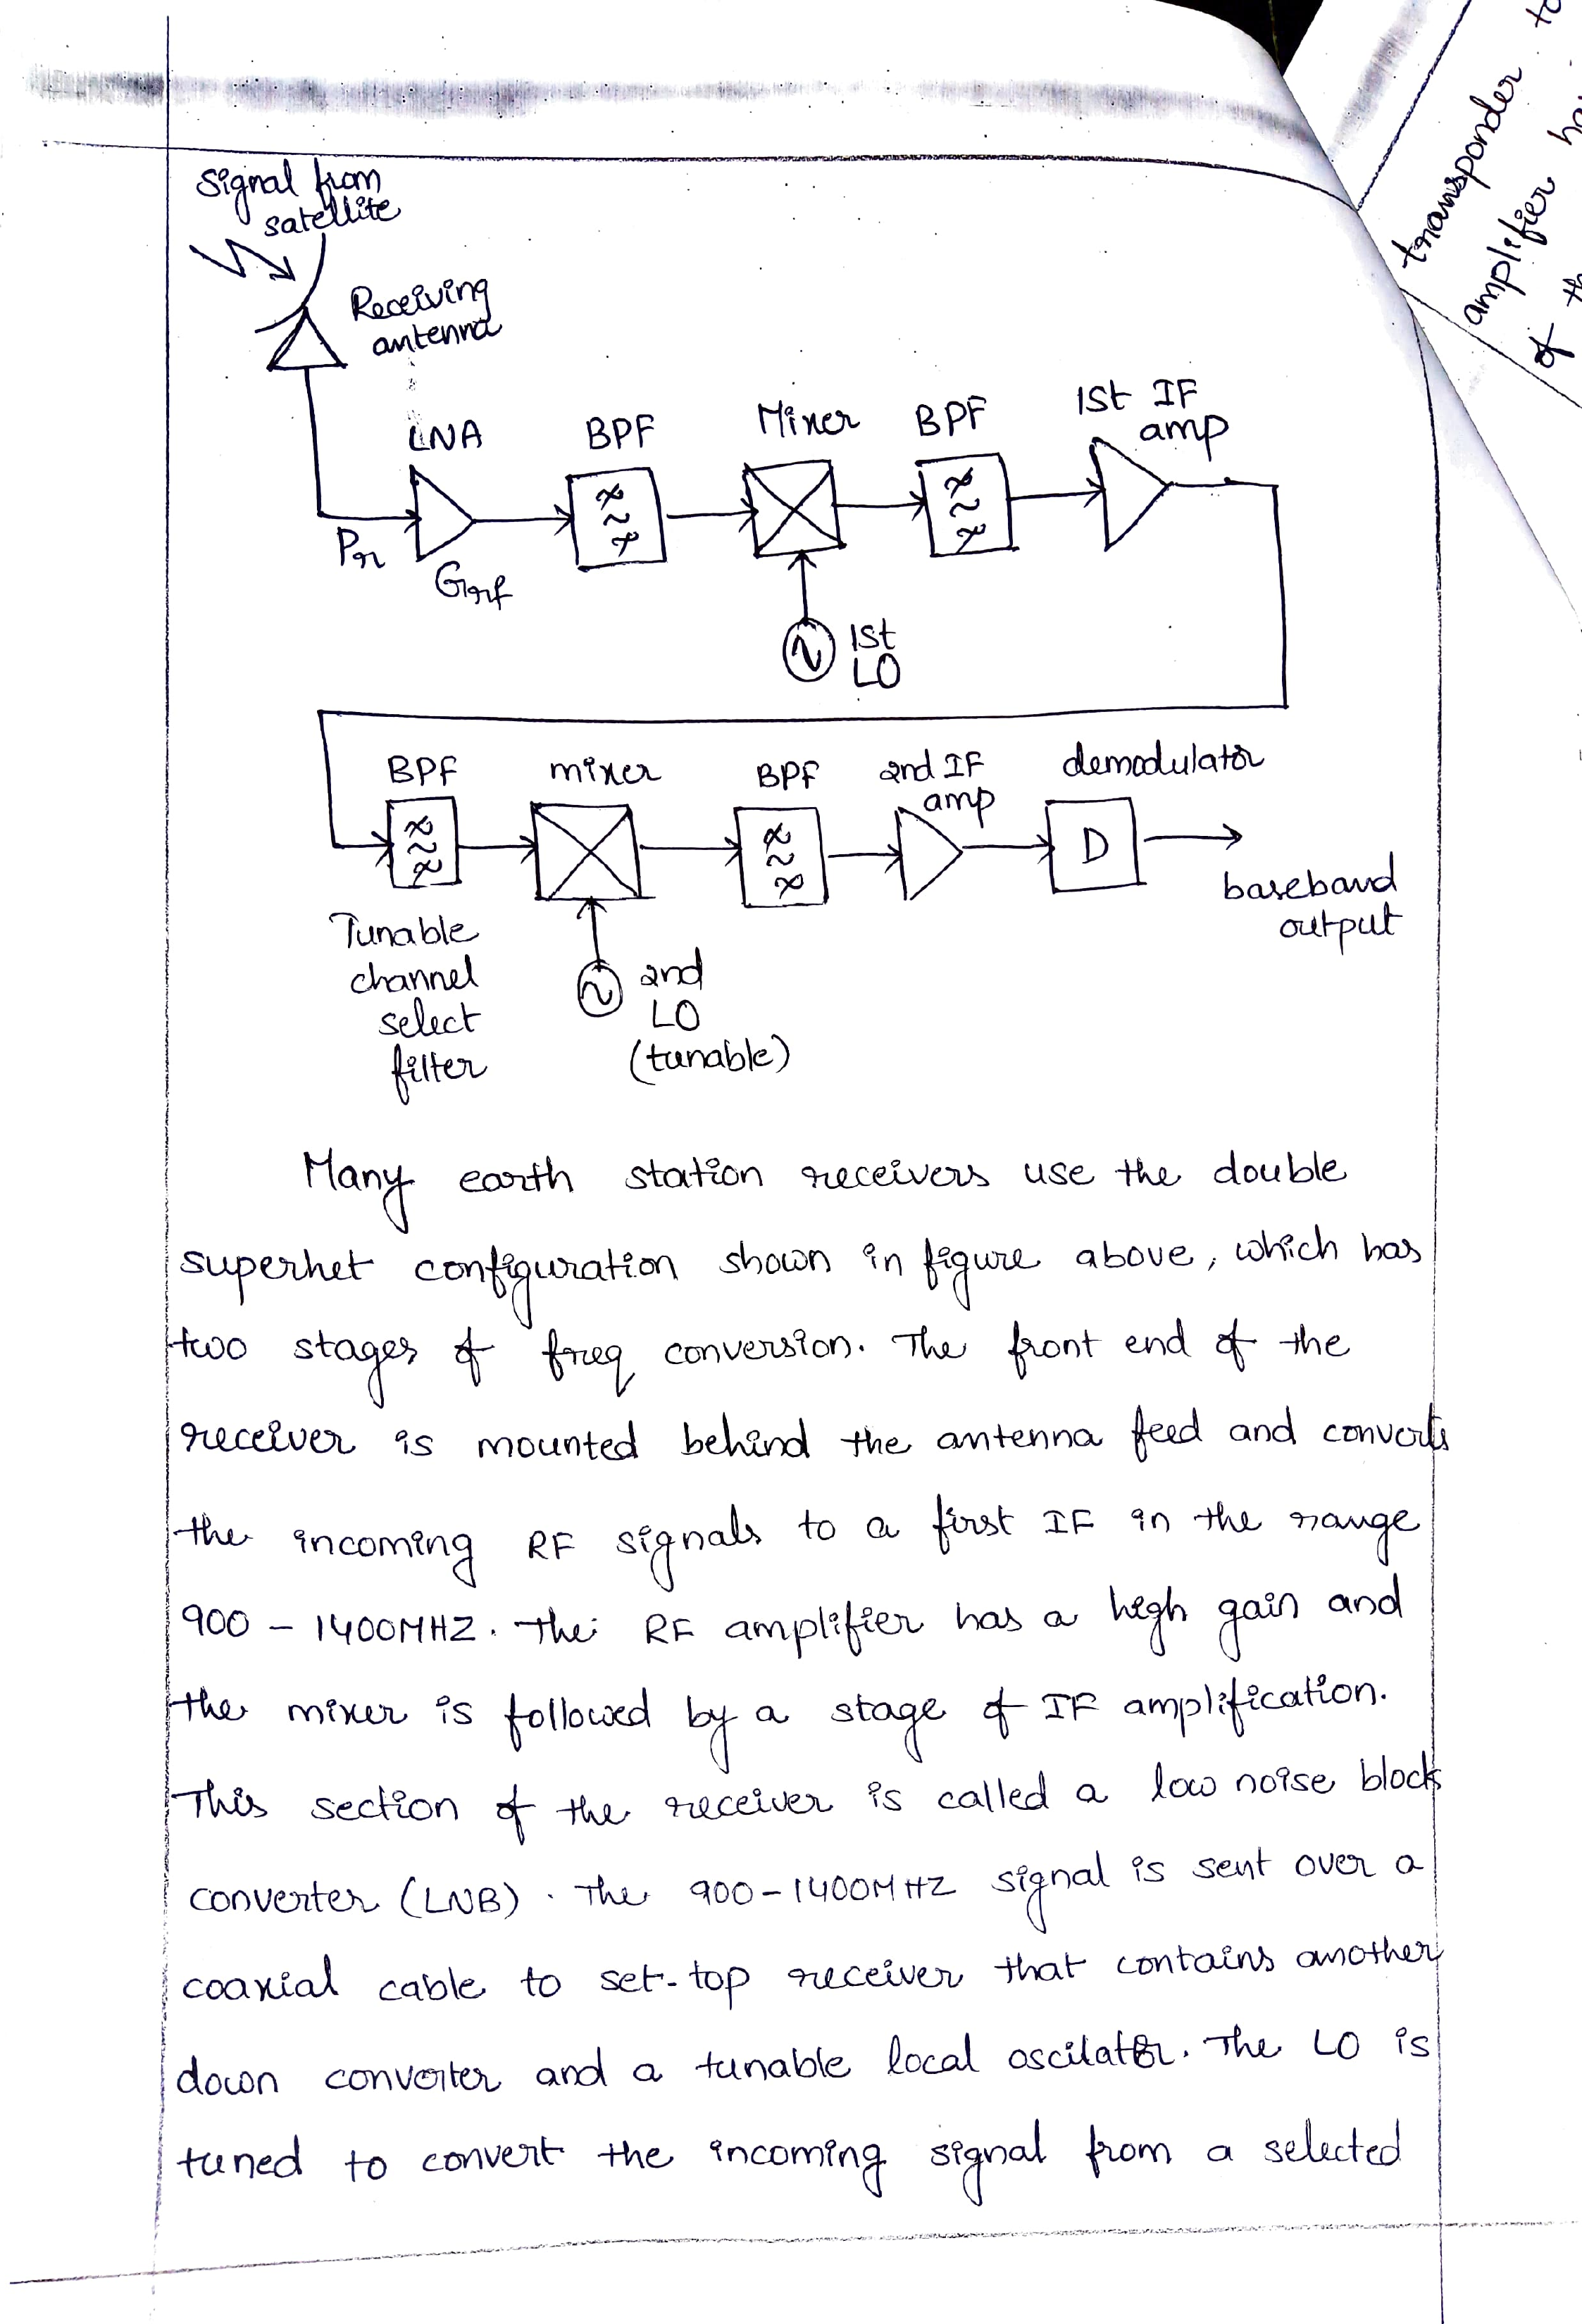 Signal from
satellite
Receiving
antenna
LNA
BPF
Mixer
BPF
1st IF
amp
Pr
Grf
1st
LO
BPF
mixer
BPF
2nd IF
amp
demodulator
D
baseband
output
Tunable
channel
select
filter
2nd
LO
(tunable)
Many earth station receivers use the double
superhet configuration shown in figure above, which has
two stages of freq conversion. The front end of the
receiver is mounted behind the antenna feed and converts
the incoming RF signals to a first IF in the range
900 - 1400MHZ. The RF amplifier has a high gain and
the mixer is followed by a stage of IF amplification.
This section of the receiver is called a low noise block
converter (LNB). The 900-1400MHZ signal is sent over a
coaxial cable to set-top receiver that contains another
down converter and a tunable local oscilator. The LO is
tuned to convert the incoming signal from a selected
transponder to
amplifier
of